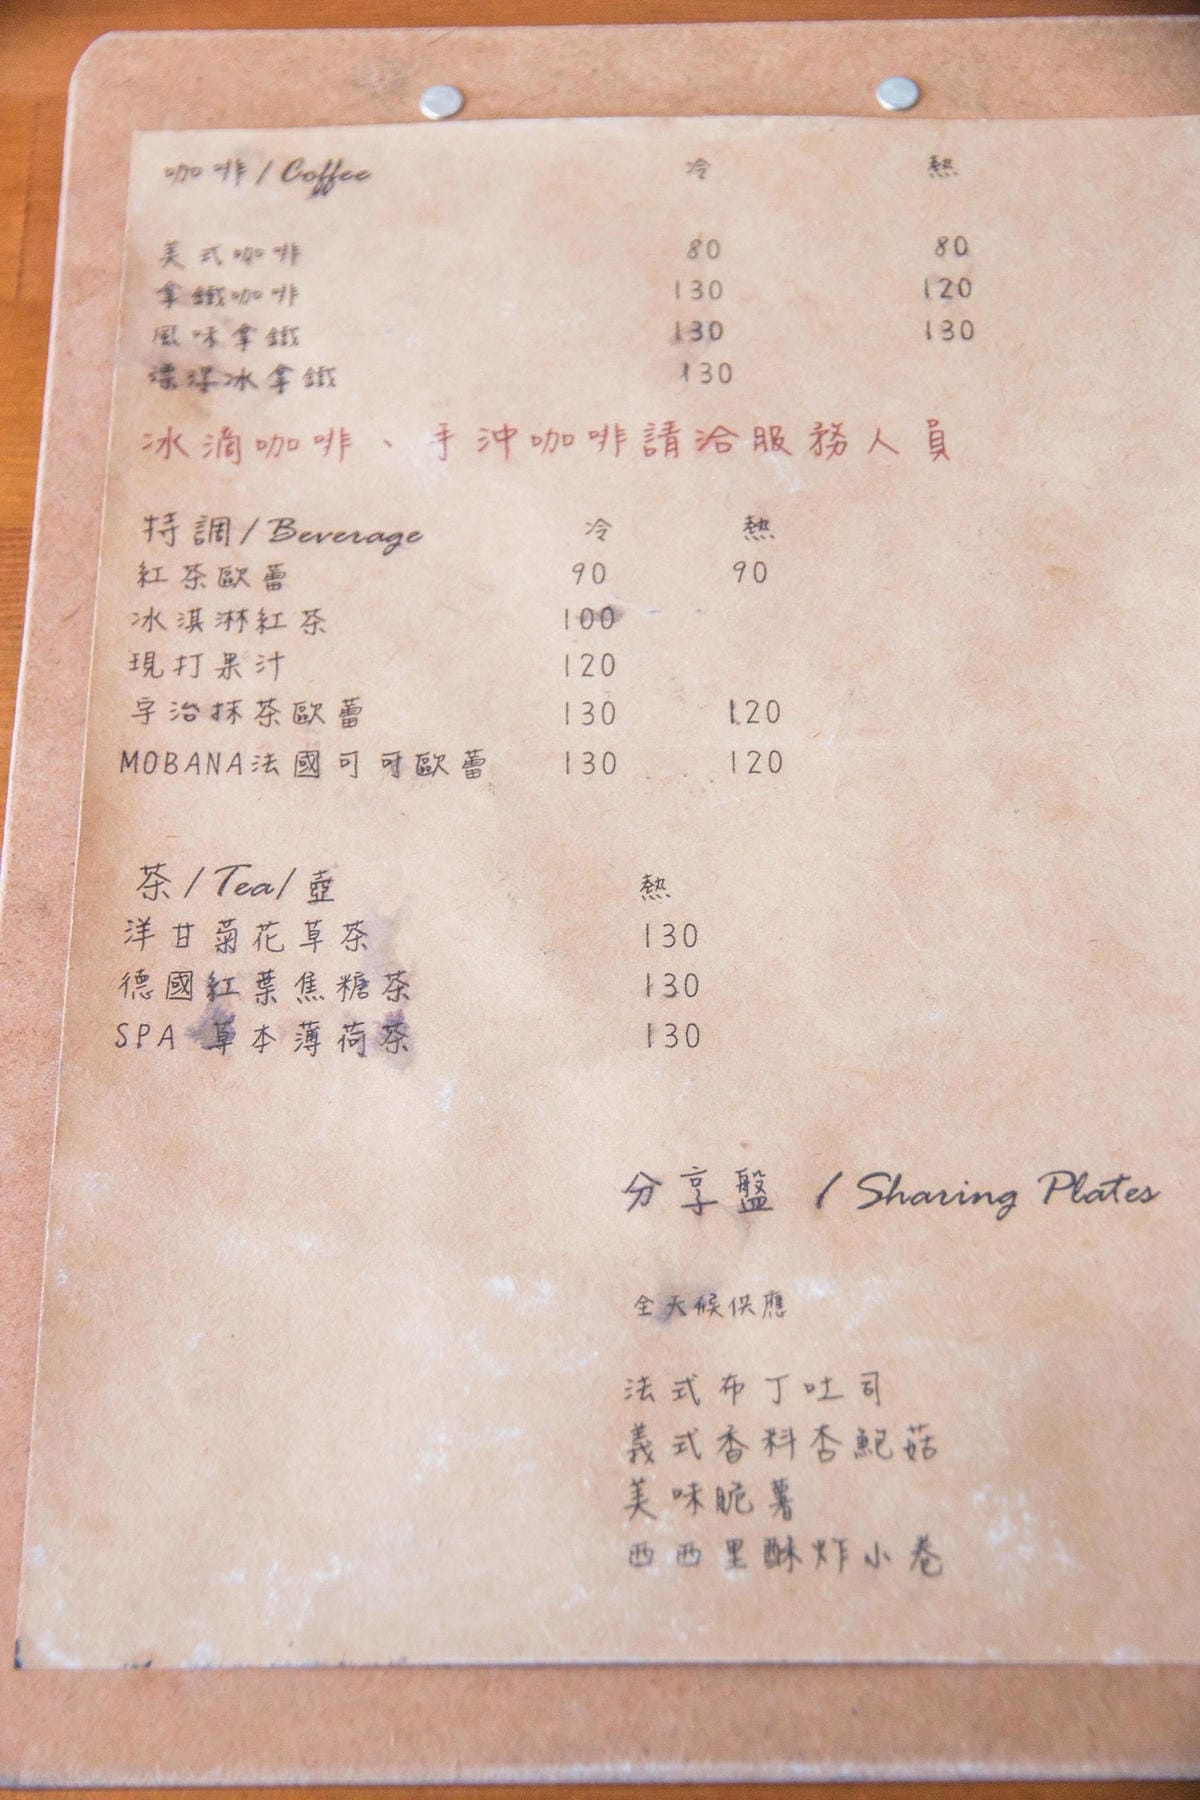 咖啡/Coffee 冷 熱
美式咖啡 80 80
拿鐵咖啡 130 120
風味拿鐵 130 130
漂浮冰拿鐵 130
冰滴咖啡、手沖咖啡請洽服務人員
特調/Beverage 冷 熱
紅茶歐蕾 90 90
冰淇淋紅茶 100
現打果汁 120
宇治抹茶歐蕾 130 120
MOBANA法國可可歐蕾 130 120
茶/Tea/壺 熱
洋甘菊花草茶 130
德國紅葉焦糖茶 130
SPA 草本薄荷茶 130
分享盤 / Sharing Plates
全天候供應
法式布丁吐司
義式香料杏鮑菇
美味脆薯
西西里酥炸小卷